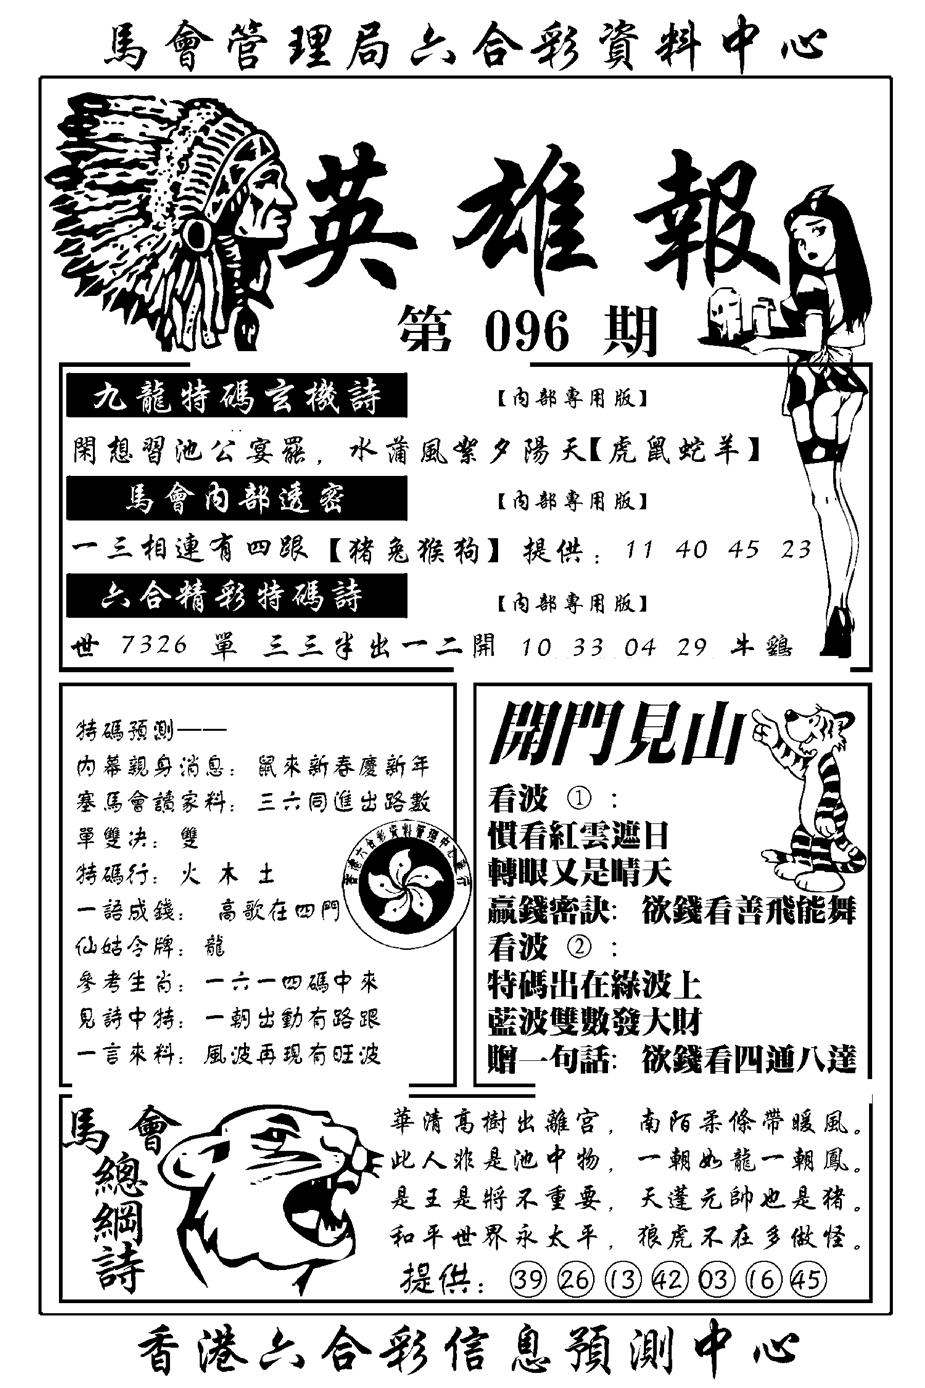 馬會管理局六合彩資料中心
英雄報
第 096 期
九龍特碼玄機詩 【内部專用版】
閑想習池公宴罷，水蒲風絮夕陽天【虎鼠蛇羊】
馬會内部透密 【内部專用版】
一三相連有四跟【猪兔猴狗】 提供：11 40 45 23
六合精彩特碼詩 【内部專用版】
世 7326 單 三三半出一二開 10 33 04 29 牛鷄
特碼預測——
内幕親身消息：鼠來新春慶新年
塞馬會讀家料：三六同進出路數
單雙决：雙
特碼行：火 木 土
一語成錢： 高歌在四門
仙姑令牌：龍
參考生肖：一六一四碼中來
見詩中特：一朝出動有路跟
一言來料：風波再現有旺波
香港六合彩資料管理中心發行
開門見山
看波 ①：
慣看紅雲遮日
轉眼又是晴天
贏錢密訣：欲錢看善飛能舞
看波 ②：
特碼出在綠波上
藍波雙數發大財
贈一句話：欲錢看四通八達
馬會
總綱詩
華清高樹出離宮，南陌柔條帶暖風。
此人非是池中物，一朝如龍一朝鳳。
是王是將不重要，天蓬元帥也是猪。
和平世界永太平，狼虎不在多做怪。
提供：㊴ ㉖ ⑬ ㊷ 03 ⑯ ㊺
香港六合彩信息預測中心